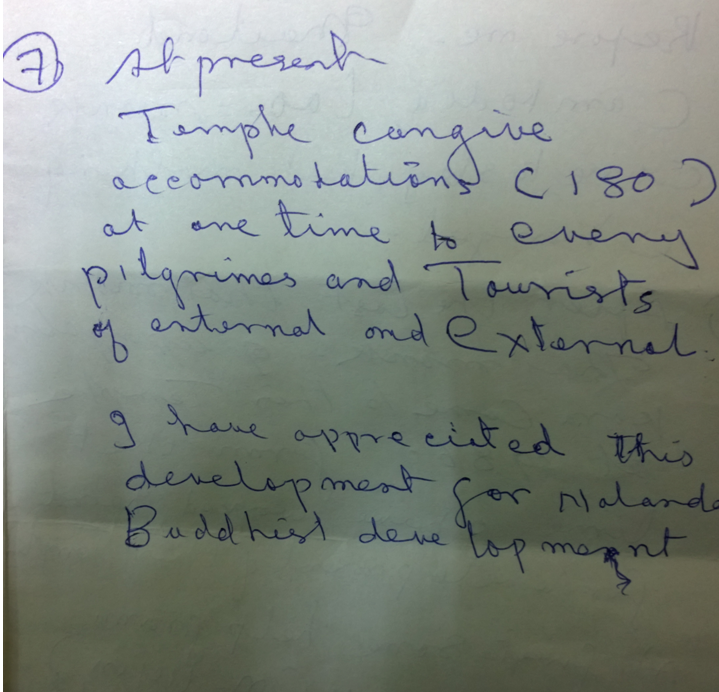 7 At present
Temple can give
accommodations (180)
at one time to every
pilgrimes and Tourists
of enternal and External.
I have appreciated this
development for Nalanda
Buddhist development